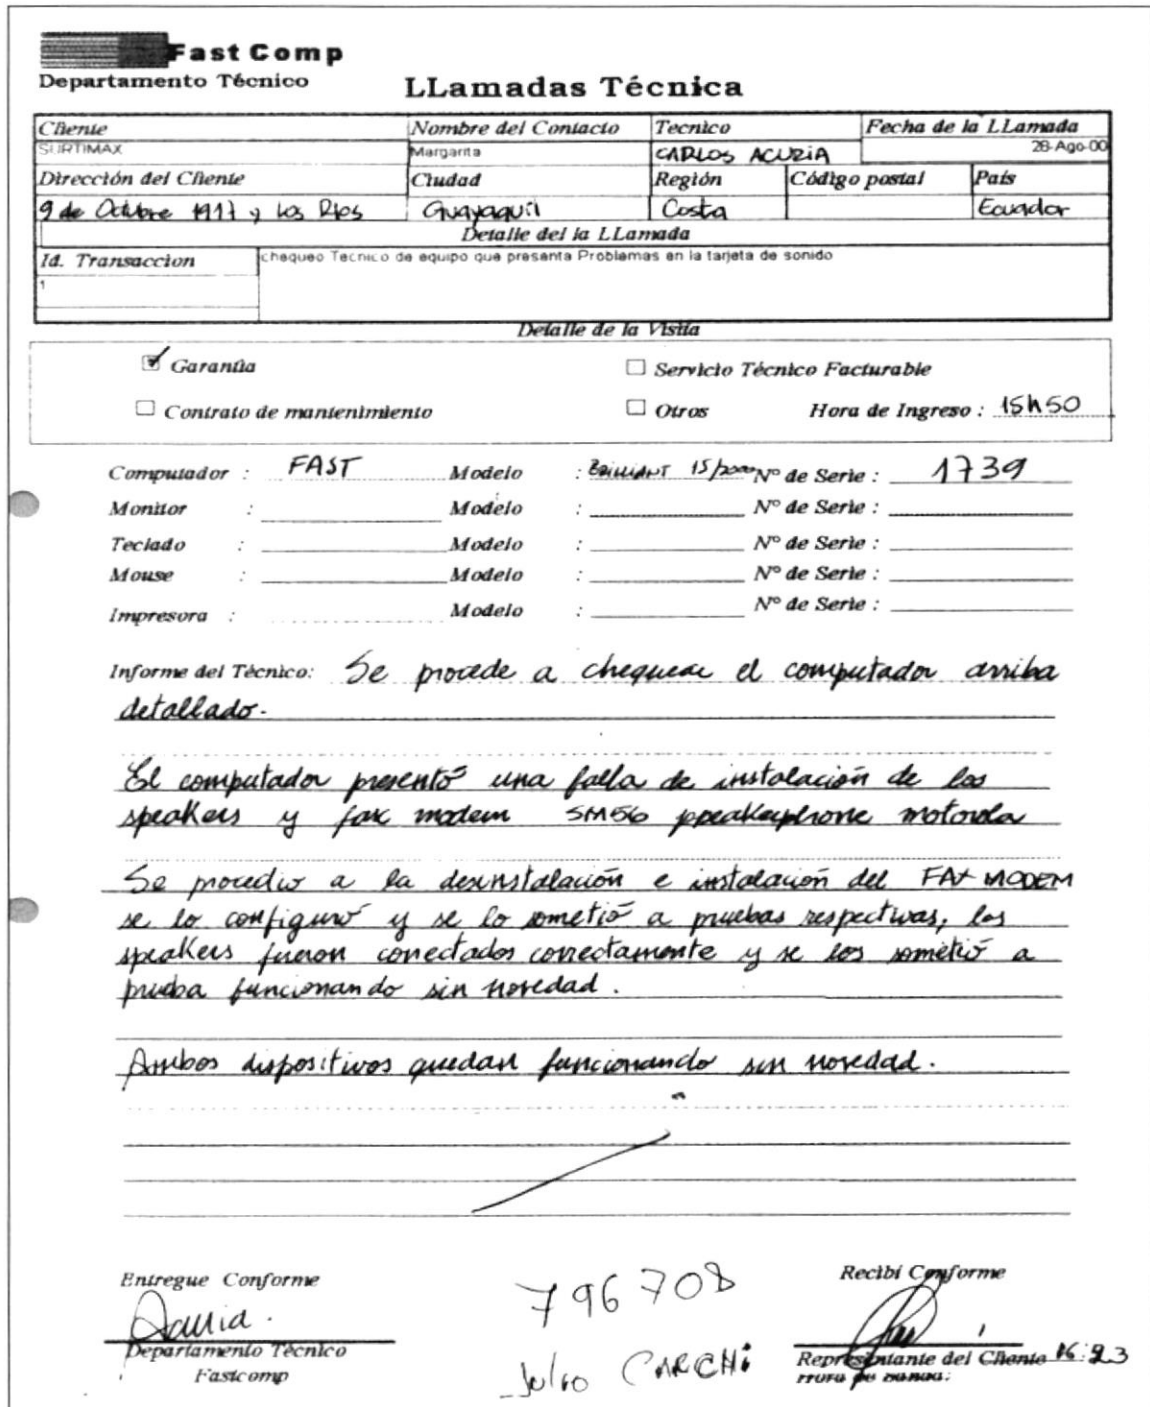 Fast Comp
Departamento Técnico
LLamadas Técnica
Cliente Nombre del Contacto Tecnico Fecha de la LLamada
SURTIMAX Margarita CARLOS ACUÑA 28-Ago-00
Dirección del Cliente Ciudad Región Código postal País
9 de Octubre 1911 y Los Rios Guayaquil Costa Ecuador
Detalle del la LLamada
Id. Transaccion chequeo Tecnico de equipo que presenta Problemas en la tarjeta de sonido
1
Detalle de la Visita
Garantía Servicio Técnico Facturable
Contrato de mantenimiento Otros Hora de Ingreso : 15h50
Computador : FAST Modelo : BRILLIANT 15/2000 Nº de Serie : 1739
Monitor : Modelo : Nº de Serie :
Teclado : Modelo : Nº de Serie :
Mouse : Modelo : Nº de Serie :
Impresora : Modelo : Nº de Serie :
Informe del Técnico: Se procede a chequear el computador arriba
detallado.
El computador presentó una falla de instalación de los
speakers y fax modem SM56 speakerphone motorola
Se procedio a la desinstalación e instalación del FAX MODEM
se lo configuró y se lo sometió a pruebas respectivas, los
speakers fueron conectados correctamente y se los sometió a
prueba funcionando sin novedad.
Ambos dispositivos quedan funcionando sin novedad.
Entregue Conforme 796708 Recibí Conforme
Acuña.
Departamento Técnico Representante del Cliente
Fastcomp Julio CARCHi